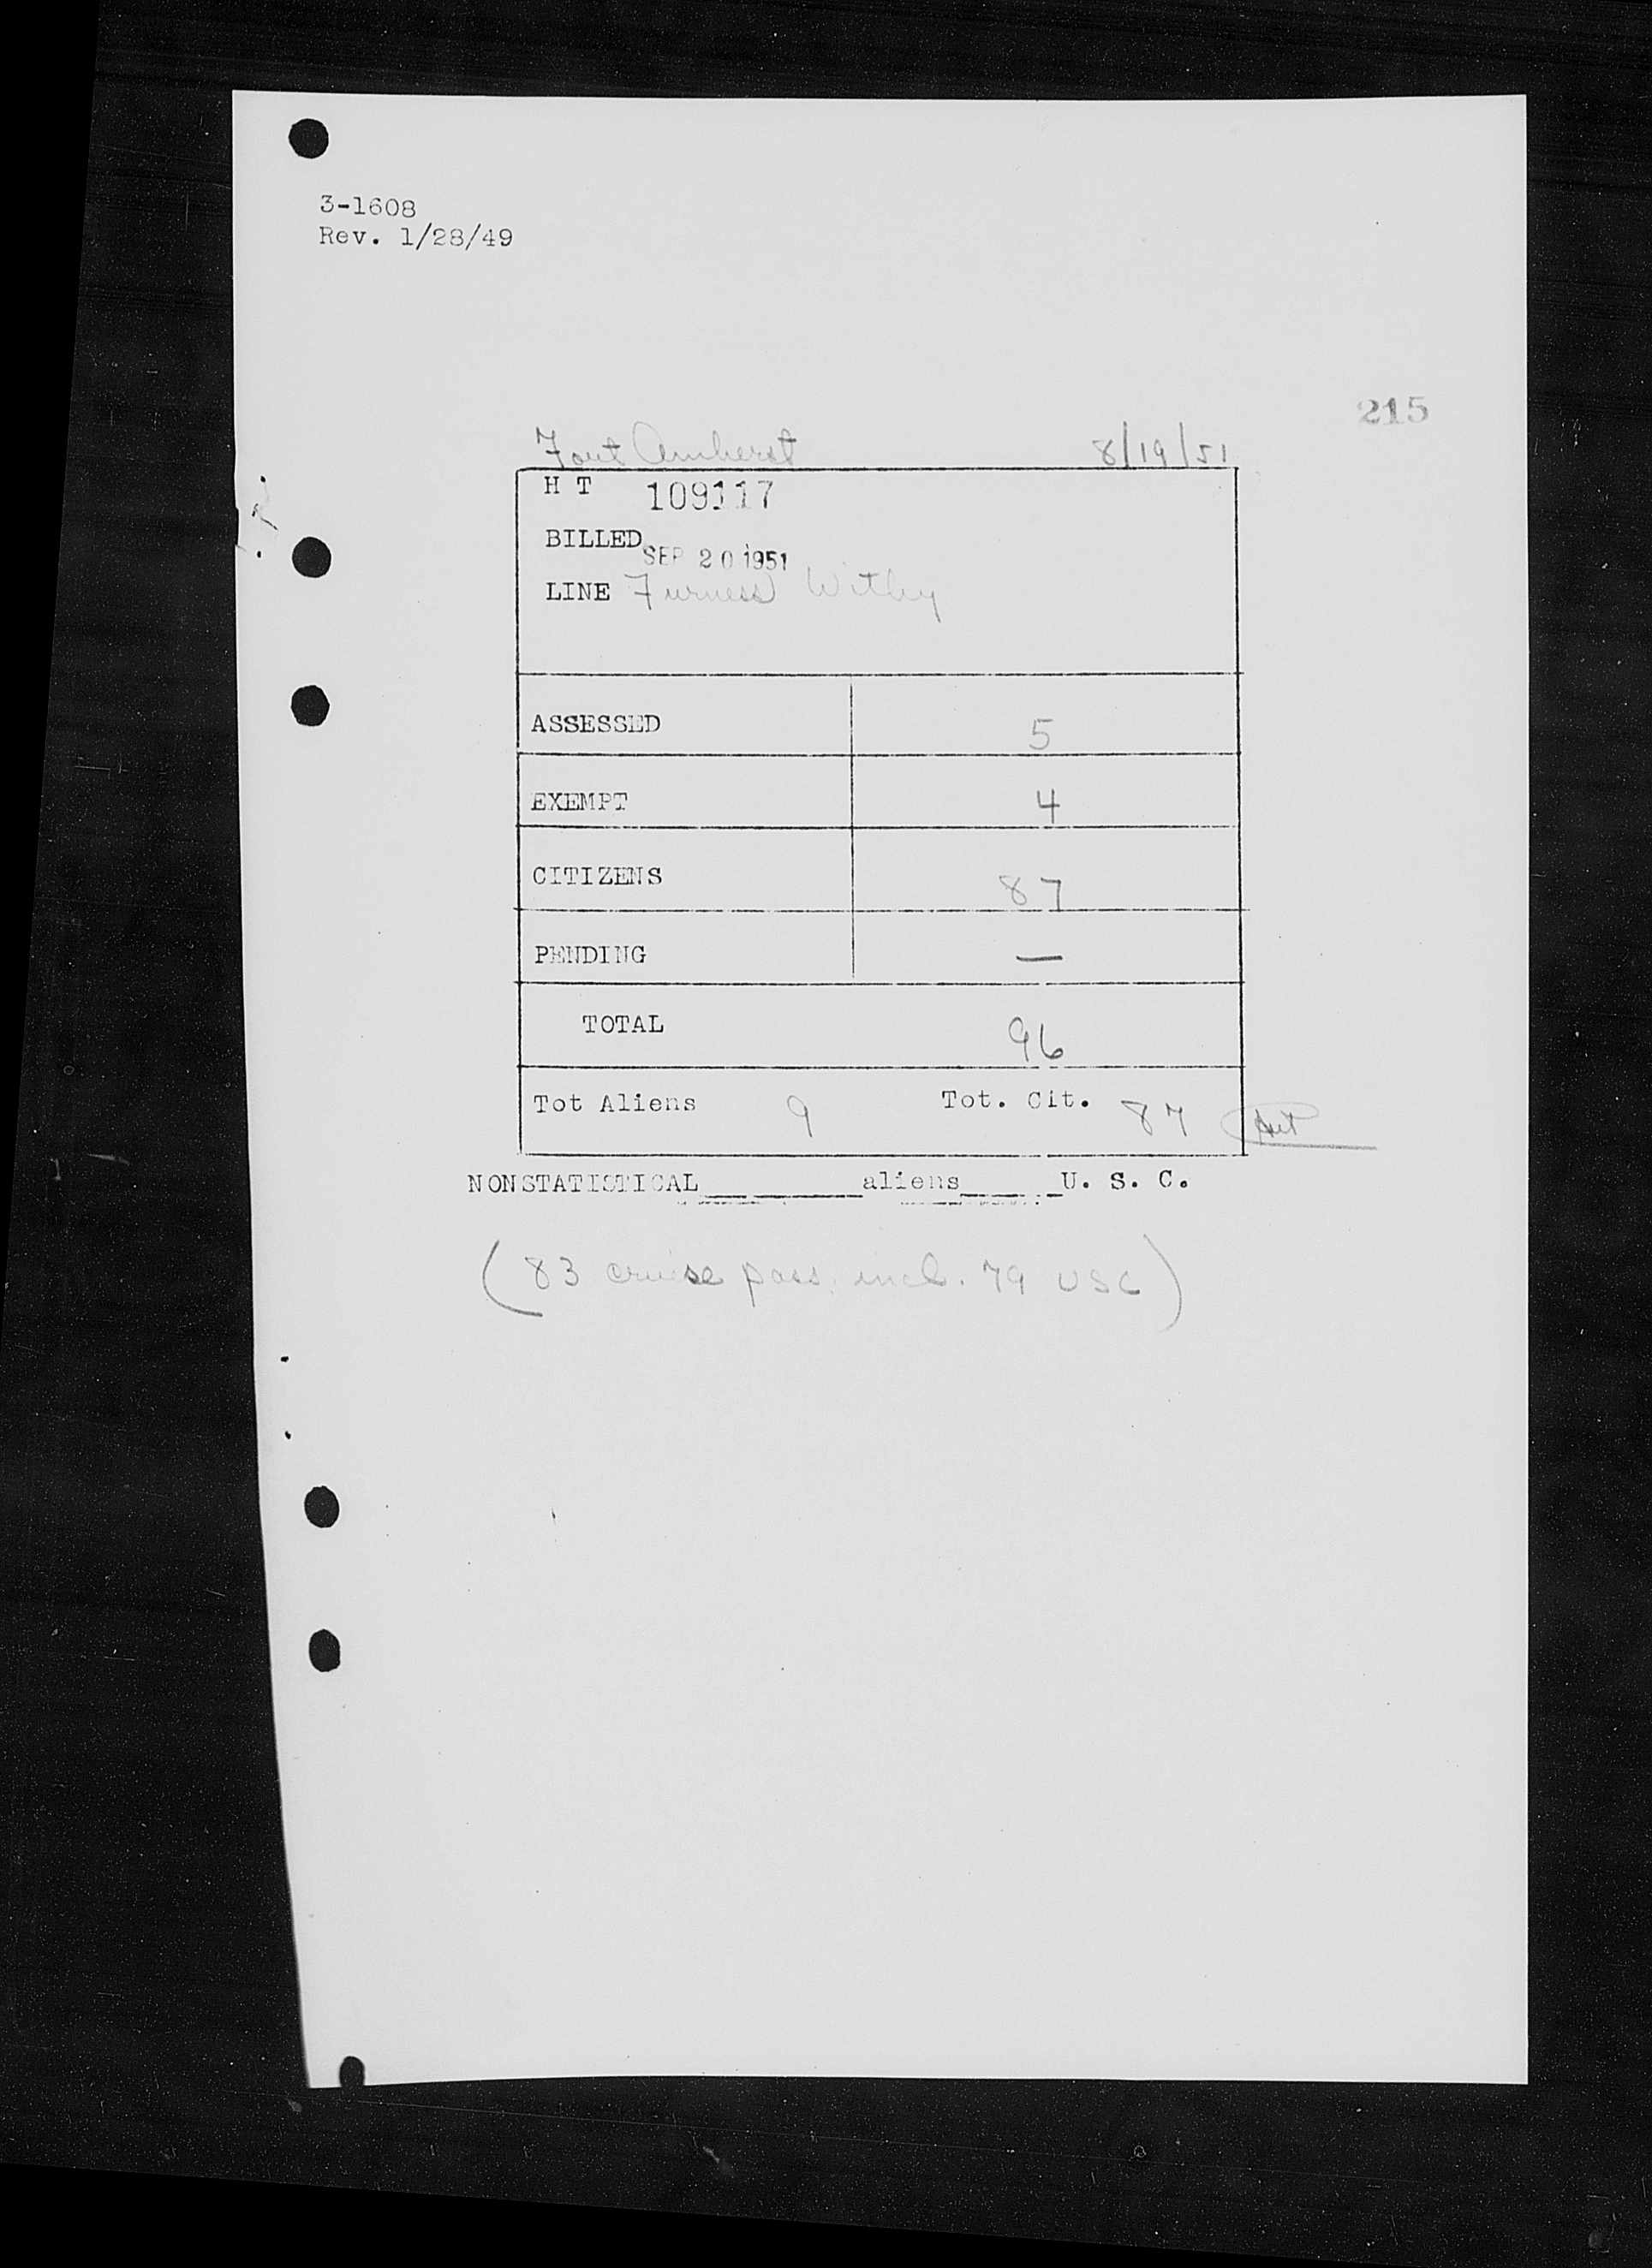 3-1608
Rev. 1/28/49
215
Fort Amherst 8/19/51
H T 109117
BILLED SEP 20 1951
LINE Furness Withy
ASSESSED 5
EXEMPT 4
CITIZENS 87
PENDING —
TOTAL 96
Tot Aliens 9 Tot. Cit. 87
NONSTATISTICAL__________aliens______U. S. C.
(83 cruise pass. incl. 79 USC)